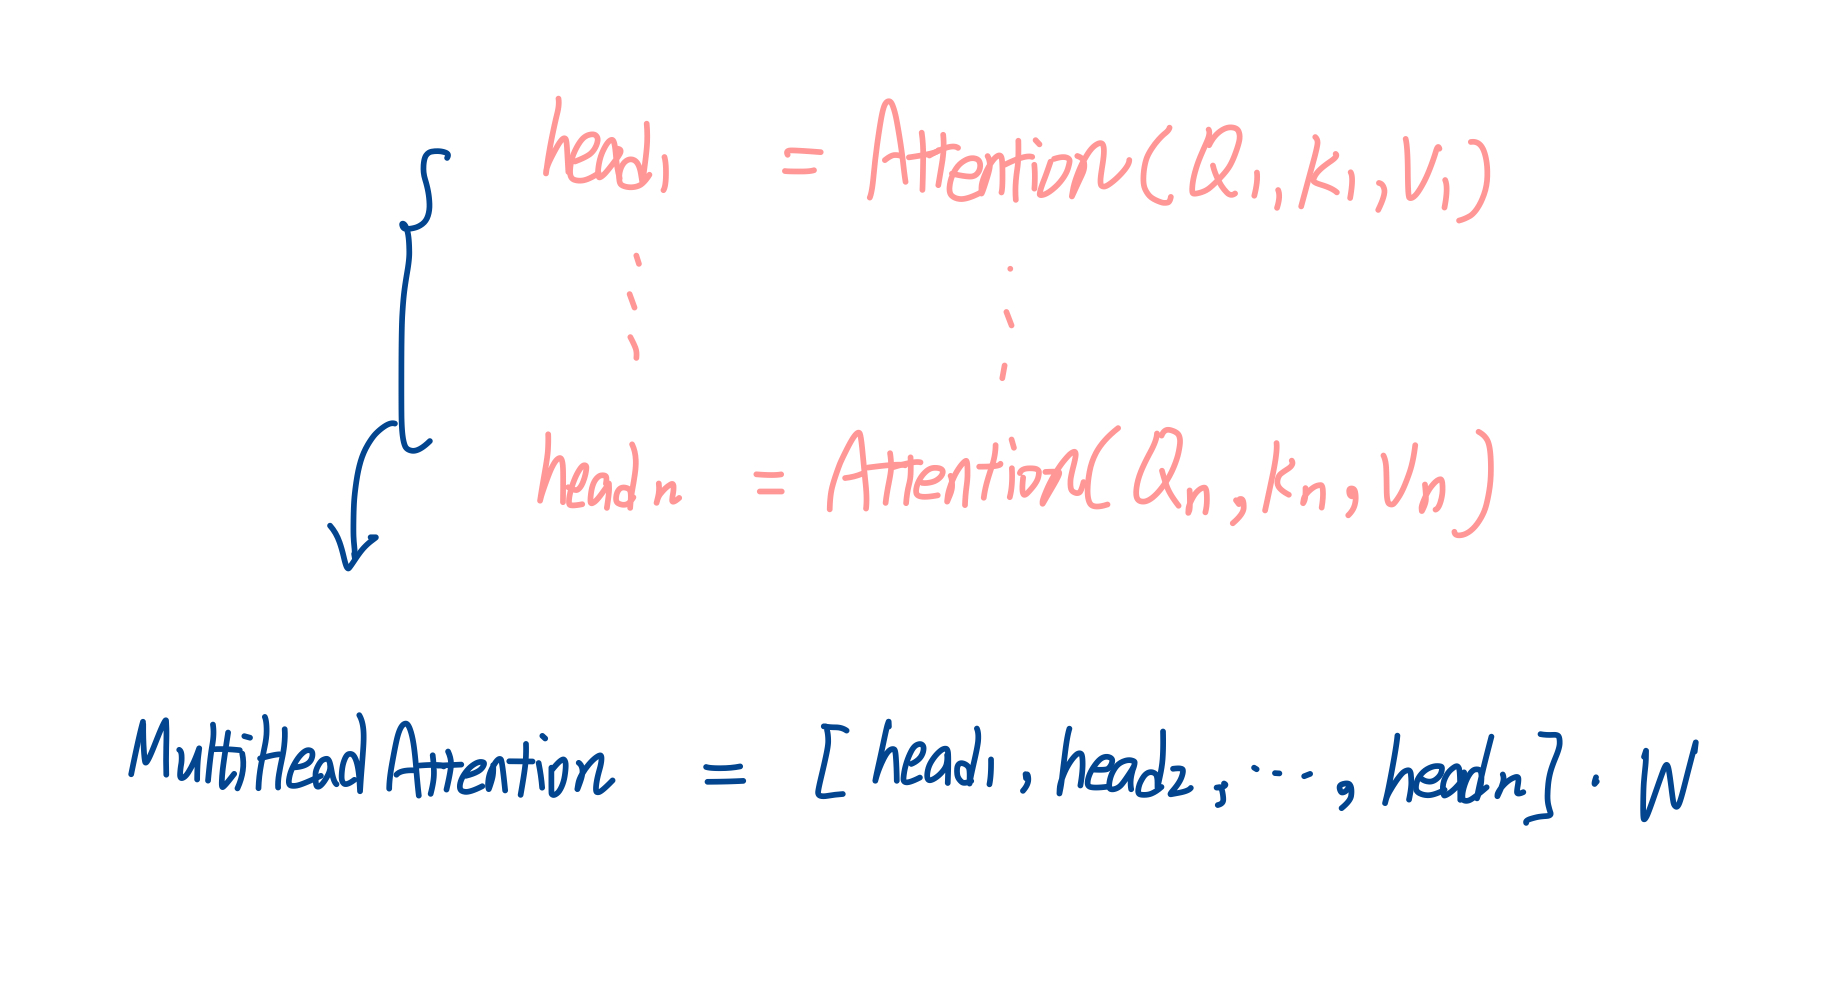 head₁ = Attention(Q₁, K₁, V₁)
⋮ ⋮
headₙ = Attention(Qₙ, Kₙ, Vₙ)
MultiHead Attention = [head₁, head₂, ..., headₙ] · W